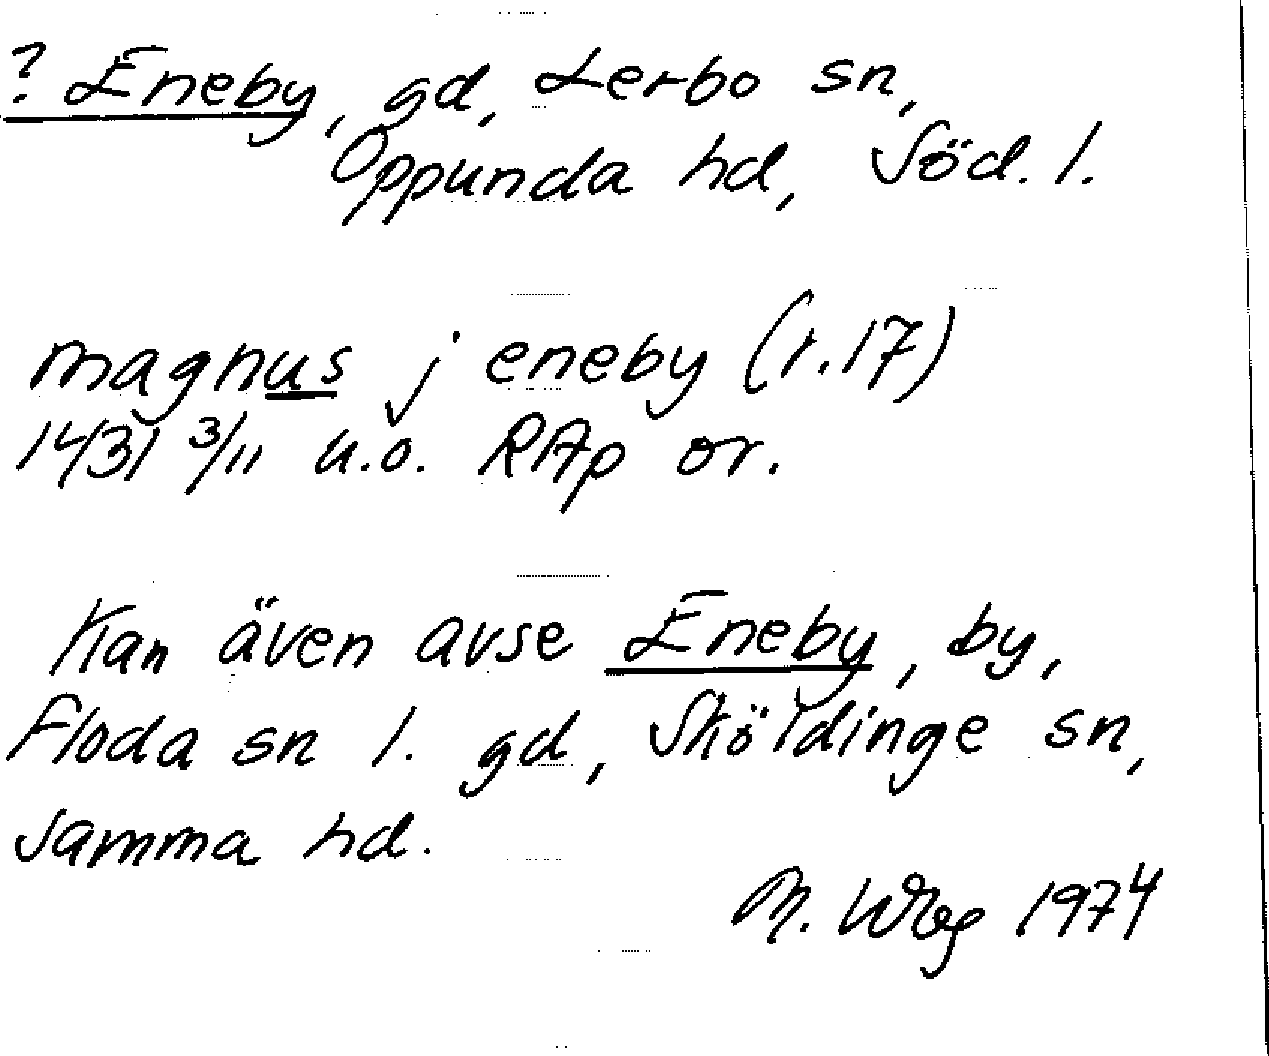 ? Eneby, gd, Lerbo sn,
Oppunda hd, Söd. l.
magnus j eneby (r. 17)
1431 3/11 u.o. RAp or.
Kan även avse Eneby, by,
Floda sn l. gd, Sköldinge sn,
samma hd.
M. 1974